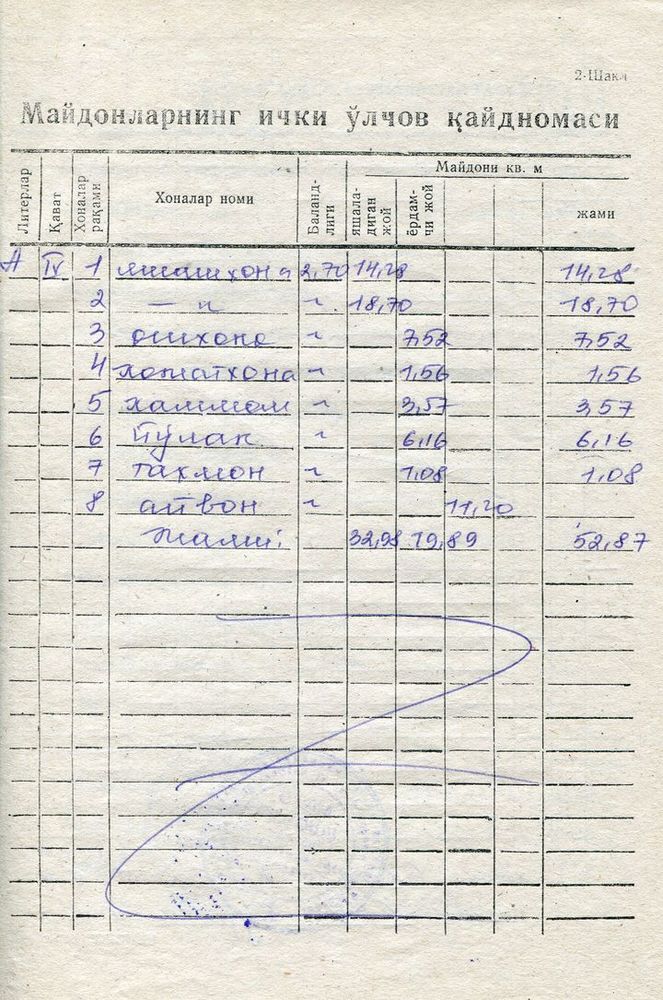 2-Шакл
Майдонларнинг ички ўлчов қайдномаси
Литерлар Қават Хоналар рақами Хоналар номи Баландлиги Майдони кв. м
яшаладиган жой ёрдамчи жой жами
А IV 1 яшашхона 2,70 14,28 14,28
2 — " — " 18,70 18,70
3 ошхона " 7,52 7,52
4 хожатхона " 1,56 1,56
5 хаммом " 3,57 3,57
6 йўлак " 6,16 6,16
7 тахмон " 1,08 1,08
8 айвон " 11,20
Жами: 32,98 19,89 52,87